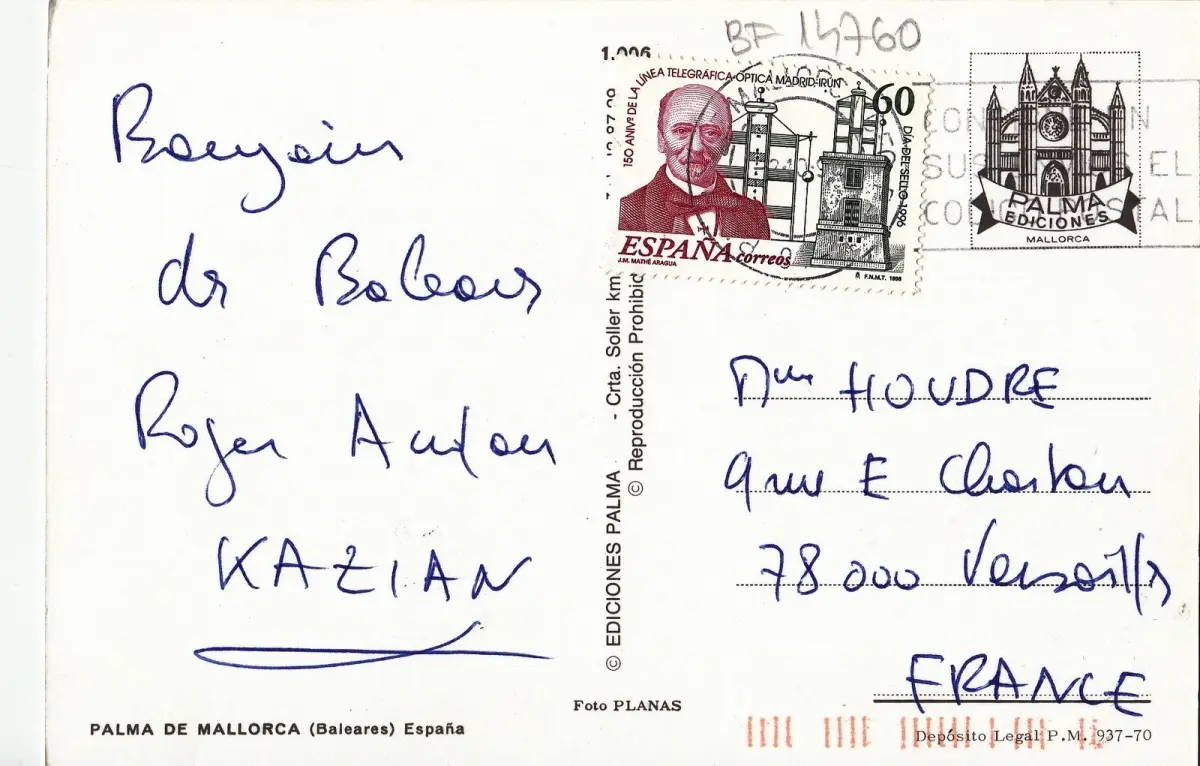 BF 14760
1.006
150 ANIVº DE LA LÍNEA TELEGRÁFICA-ÓPTICA MADRID-IRÚN
60
DÍA DEL SELLO 1996
ESPAÑA correos
J.M. MATHÉ ARAGUA
F.N.M.T. 1996
PALMA
EDICIONES
MALLORCA
Bonjour
des Baleares
Roger Anton
KAZIAN
© EDICIONES PALMA - Crta. Soller km
© Reproducción Prohibid
Mme HOUDRE
9 rue E Charton
78000 Versailles
FRANCE
PALMA DE MALLORCA (Baleares) España
Foto PLANAS
Depósito Legal P.M. 937-70